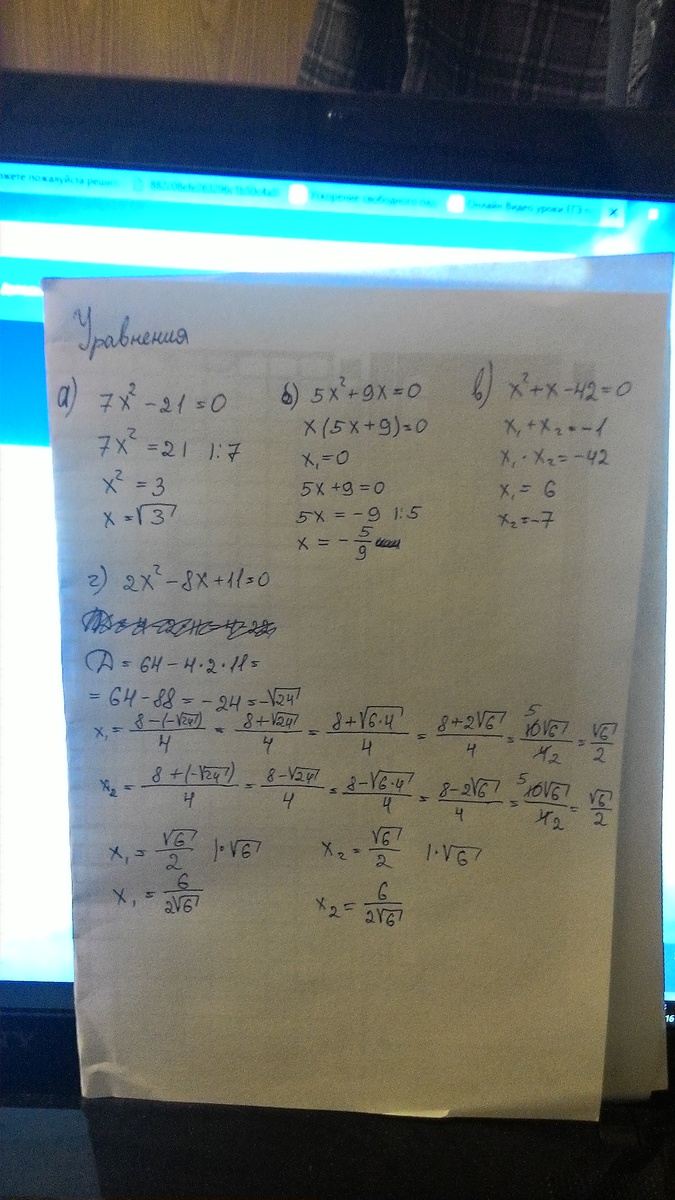 Ускорение свободного
Онлайн Видео уроки ЕГЭ
Уравнения
а) 7x² - 21 = 0
7x² = 21 |:7
x² = 3
x = √3
б) 5x² + 9x = 0
x(5x + 9) = 0
x₁ = 0
5x + 9 = 0
5x = -9 |:5
x = - 5/9
в) x² + x - 42 = 0
x₁ + x₂ = -1
x₁ · x₂ = -42
x₁ = 6
x₂ = -7
г) 2x² - 8x + 11 = 0
D = 64 - 4·2·11 =
= 64 - 88 = -24 = -√24
x₁ = (8 - (-√24))/4 = (8 + √24)/4 = (8 + √(6·4))/4 = (8 + 2√6)/4 = 5 10√6/4 2 = √6/2
x₂ = (8 + (-√24))/4 = (8 - √24)/4 = (8 - √(6·4))/4 = (8 - 2√6)/4 = 5 10√6/4 2 = √6/2
x₁ = √6/2 |·√6 x₂ = √6/2 |·√6
x₁ = 6/(2√6) x₂ = 6/(2√6)